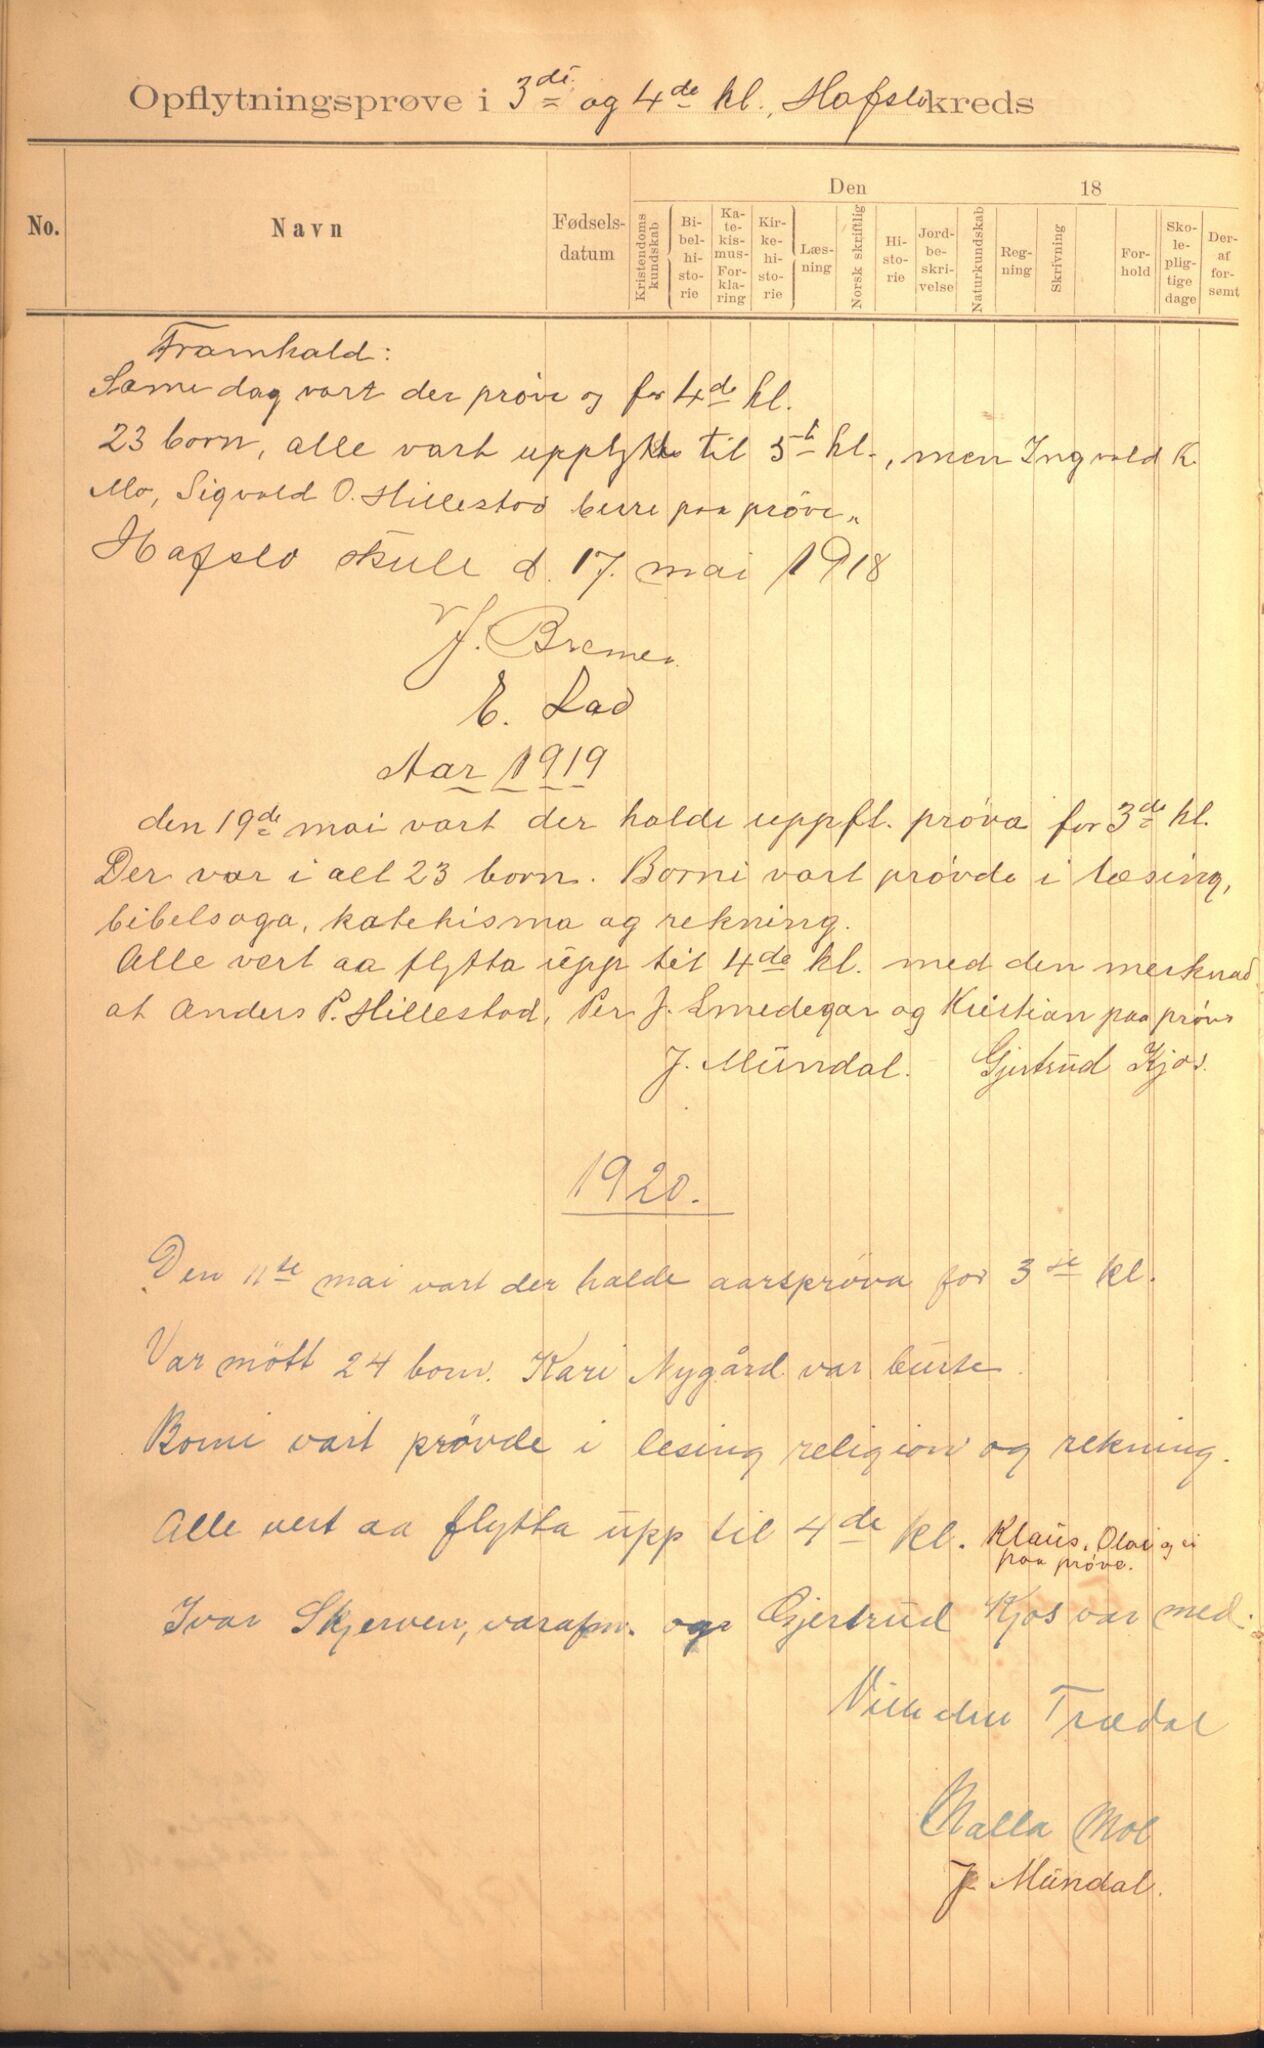 Opflytningsprøve i 3di og 4de kl., Hafslo kreds
Den 18
No.
Navn
Fødsels-
datum
Kristendoms
kundskab
Bi-
bel-
hi-
sto-
rie
Ka-
te-
kis-
mus-
For-
kla-
ring
Kir-
ke-
hi-
sto-
rie
Læs-
ning
Norsk skriftlig
Hi-
sto-
rie
Jord-
be-
skri-
velse
Naturkundskab
Reg-
ning
Skrivning
For-
hold
Sko-
le-
plig-
tige
dage
Der-
af
for-
sømt
Framhald:
Same dag vart der prøve og for 4de kl.
23 born, alle vart uppflytte til 5t kl., men Ingvald K.
Mo, Sigvald O. Hillestad berre paa prøve.
Hafslo skule d. 17. mai 1918
J. Bremer
E. Lad
Aar 1919
den 19de mai vart der halde uppfl. prøva for 3de kl.
Der var i alt 23 born. Borni vart prøvde i læsing,
bibelsoga, katekisma og rekning.
Alle vert aa flytta upp til 4de kl. med den merknad
at Anders P. Hillestad, Per J. Smedegar og Kristian paa prøve
J. Mundal. Gjertrud Kjos.
1920.
Den 11te mai vart der halde aarsprøva for 3je kl.
Var mött 24 born. Kari Nygård var burte.
Borni vart prövde i lesing religion og rekning.
Alle vert aa flytta upp til 4de kl. Klaus, Olai
paa prøve.
Ivar Skjerven, varafm. og Gjertrud Kjos var med.
Trædal
Malla Mol
J. Mundal.